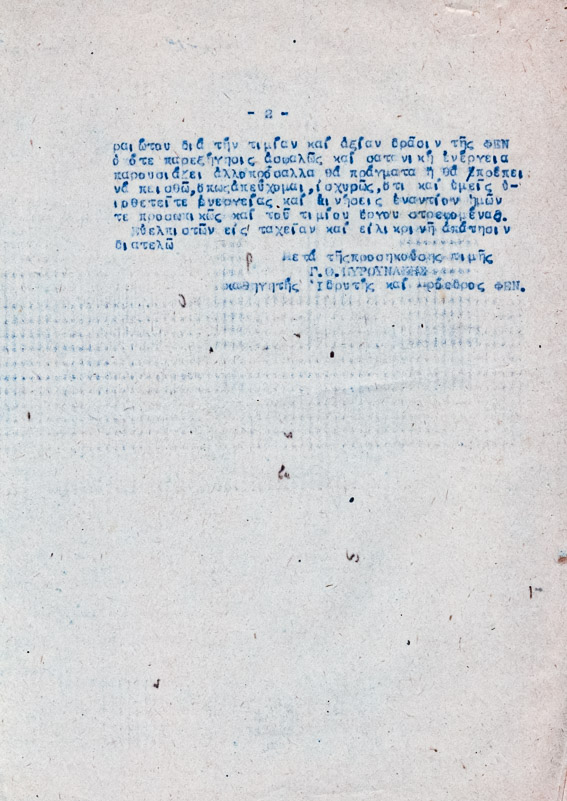 - 2 -
ραιώτου διά τήν τιμίαν καί ἀξίαν δρᾶσιν τῆς ΦΕΝ
ὁ ὅτε παρεξήγησις ἀσφαλῶς καί σατανική ἐνέργεια
παρουσιάζει ἀλλοπρόσαλλα θά πράγματα ἤ θά ἔπρεπει
νά πεισθῶ,ὅπωςἀπεύχομαι,ἰσχυρῶς,ὅτι καί ὑμεῖς ὁ-
ιοθετεῖτε ἐνεργείας καί κινήσεις ἐναντίον ἡμῶν
τε προσωπικῶς καί τοῦ τιμίου ἔργου στρεφομένας.
εὐελπιστῶν εἰς ταχεῖαν καί εἰλικρινῆ ἀπάτησιν
διατελῶ
μετά τῆςπροσηκούσης τιμῆς
Γ.Θ.ΠΥΡΟΥΝΑΚΗΣ
καθηγητής Ἱδρυτής καί πρόεδρος ΦΕΝ.